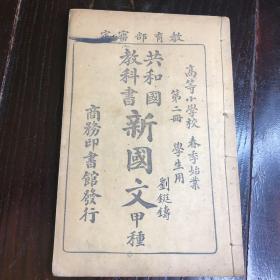 教育部審定
高等小學校 春季始業
第二冊 學生用
共和國
教科書
新國文 甲種
商務印書館發行